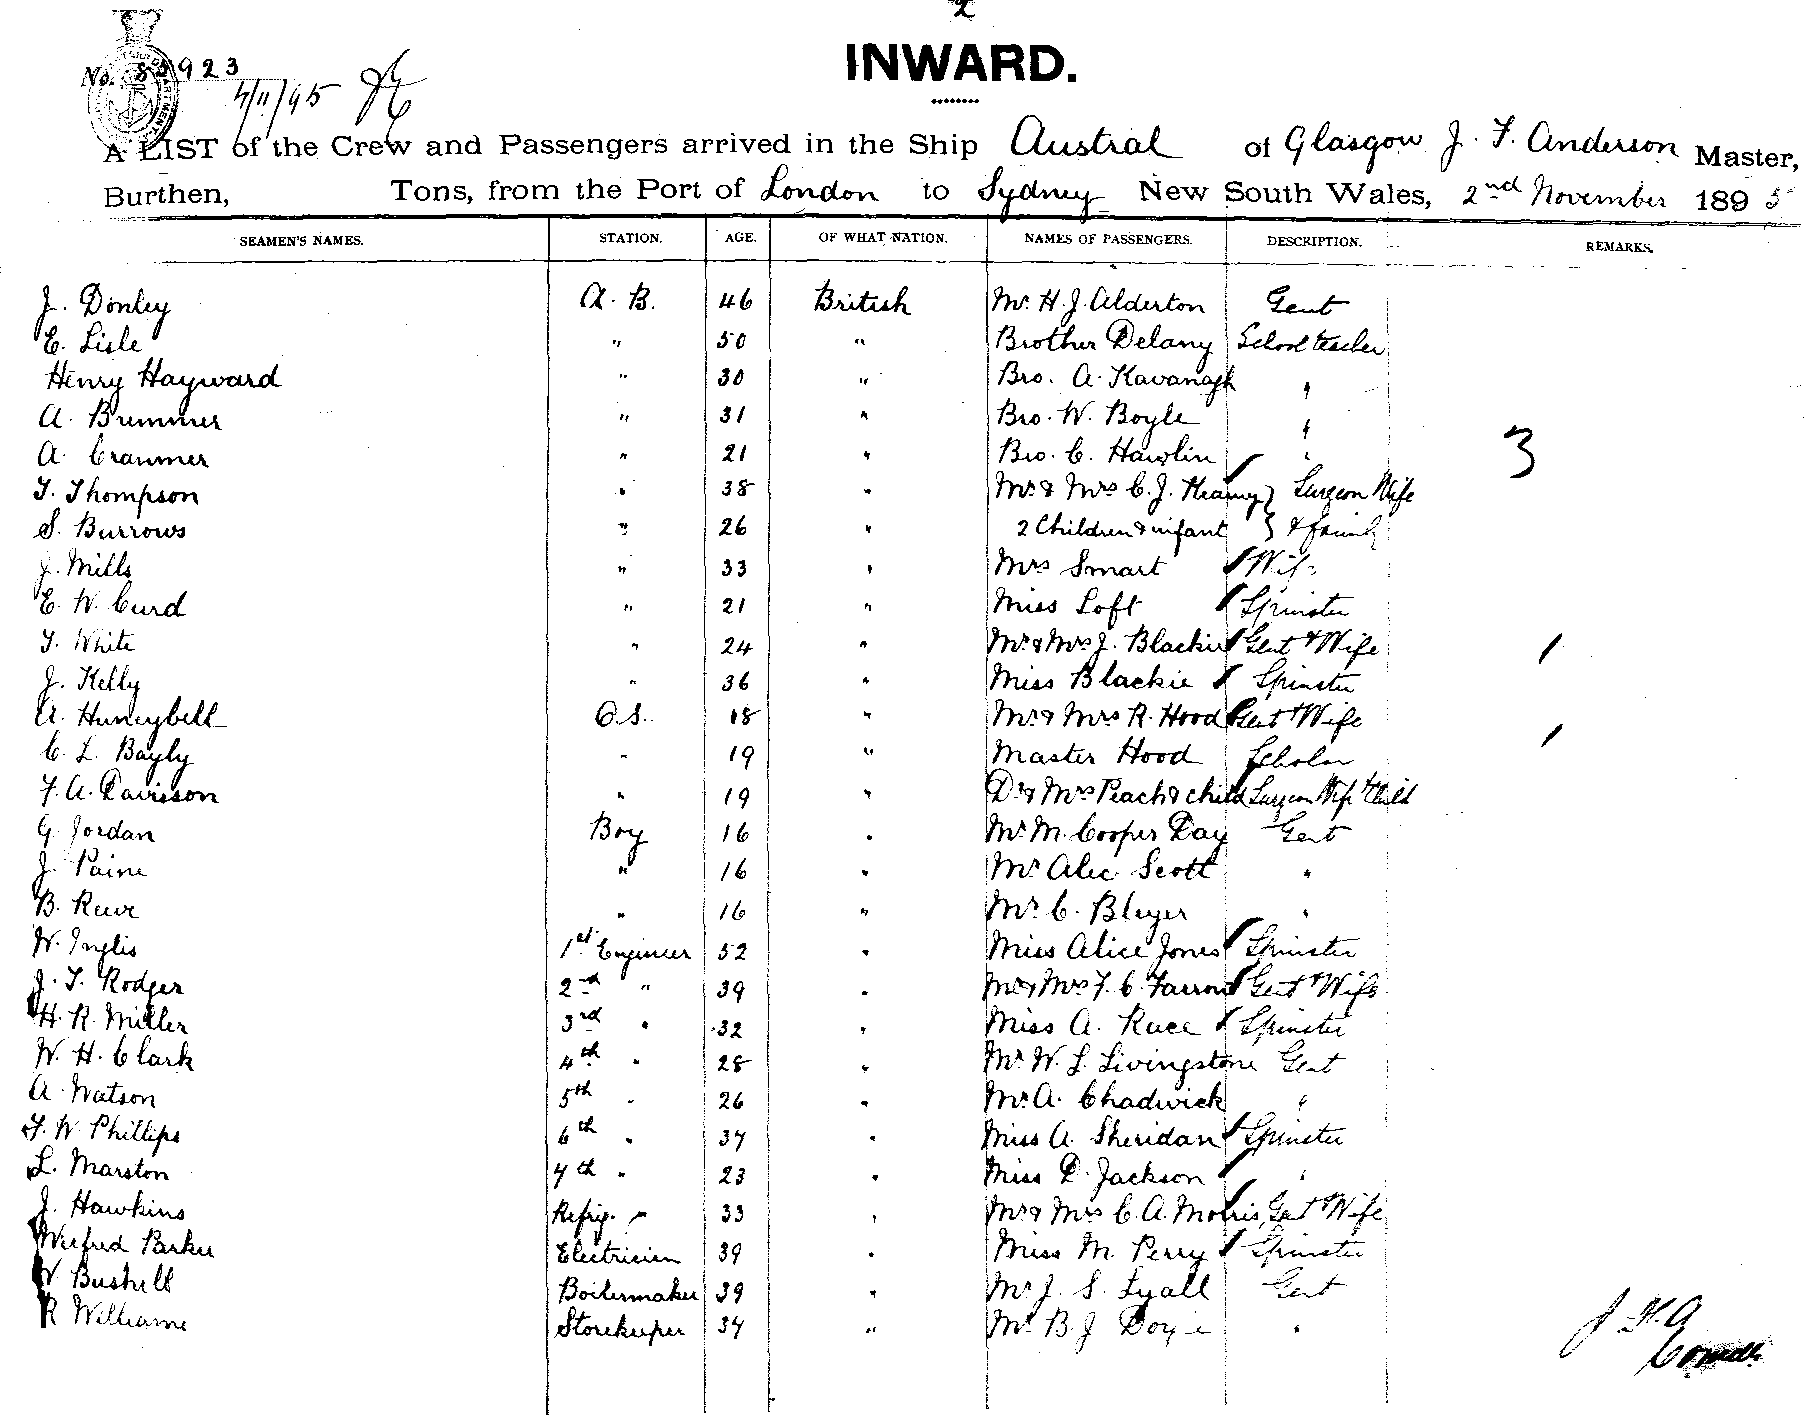 2
INWARD.
No. 923
4/11/95
A LIST of the Crew and Passengers arrived in the Ship Austral of Glasgow J. F. Anderson Master,
Burthen, Tons, from the Port of London to Sydney New South Wales, 2nd November 1895
SEAMEN'S NAMES. STATION. AGE. OF WHAT NATION. NAMES OF PASSENGERS. DESCRIPTION. REMARKS.
J. Donley A. B. 46 British Mr. H. J. Alderton Gent
E. Lisle " 50 " Brother Delany School teacher
Henry Hayward " 30 " Bro. A. Kavanagh "
A. Brummer " 31 " Bro. W. Boyle "
A. Cranmer " 21 " Bro. C. Hawlin " 3
T. Thompson " 38 " Mr & Mrs C. J. Surgeon Wife
S. Burrows " 26 " 2 Children & infant } & family
J. Mills " 33 " Mrs Smart Wife
E. W. Curd " 21 " Miss Loft Spinster
T. White " 24 " Mr & Mrs J. Blackie Gent & Wife 1
J. Kelly " 36 " Miss Blackie Spinster
A. Huneybell O.S. 18 " Mr & Mrs R. Hood Gent & Wife 1
C. L. Bayly " 19 " Master Hood Scholar
F. A. Davisson " 19 " Dr & Mrs Peach & child Surgeon Wife & Child
G. Jordan Boy 16 " Mr M. Cooper Day Gent
J. Paine " 16 " Mr Alec Scott "
B. Reeve " 16 " Mr C. Bleyer "
W. Inglis 1st Engineer 52 " Miss Alice Jones Spinster
J. T. Rodger 2nd " 39 " Mr & Mrs F. C. Farrow Gent & Wife
H. R. Miller 3rd " 32 " Miss A. Race Spinster
W. H. Clark 4th " 28 " Mr W. L. Livingstone Gent
A. Watson 5th " 26 " Mr A. Chadwick "
T. W. Phillips 6th " 37 " Miss A. Sheridan Spinster
L. Marston 7th " 23 " Miss D. Jackson "
J. Hawkins Refrig. " 33 " Mr & Mrs C. A. Morris Gent & Wife
Parker Electrician 39 " Miss M. Perry Spinster
W Bushell Boilermaker 39 " Mr J. S. Lyall Gent
R Williams Storekeeper 37 " Mr B. J "